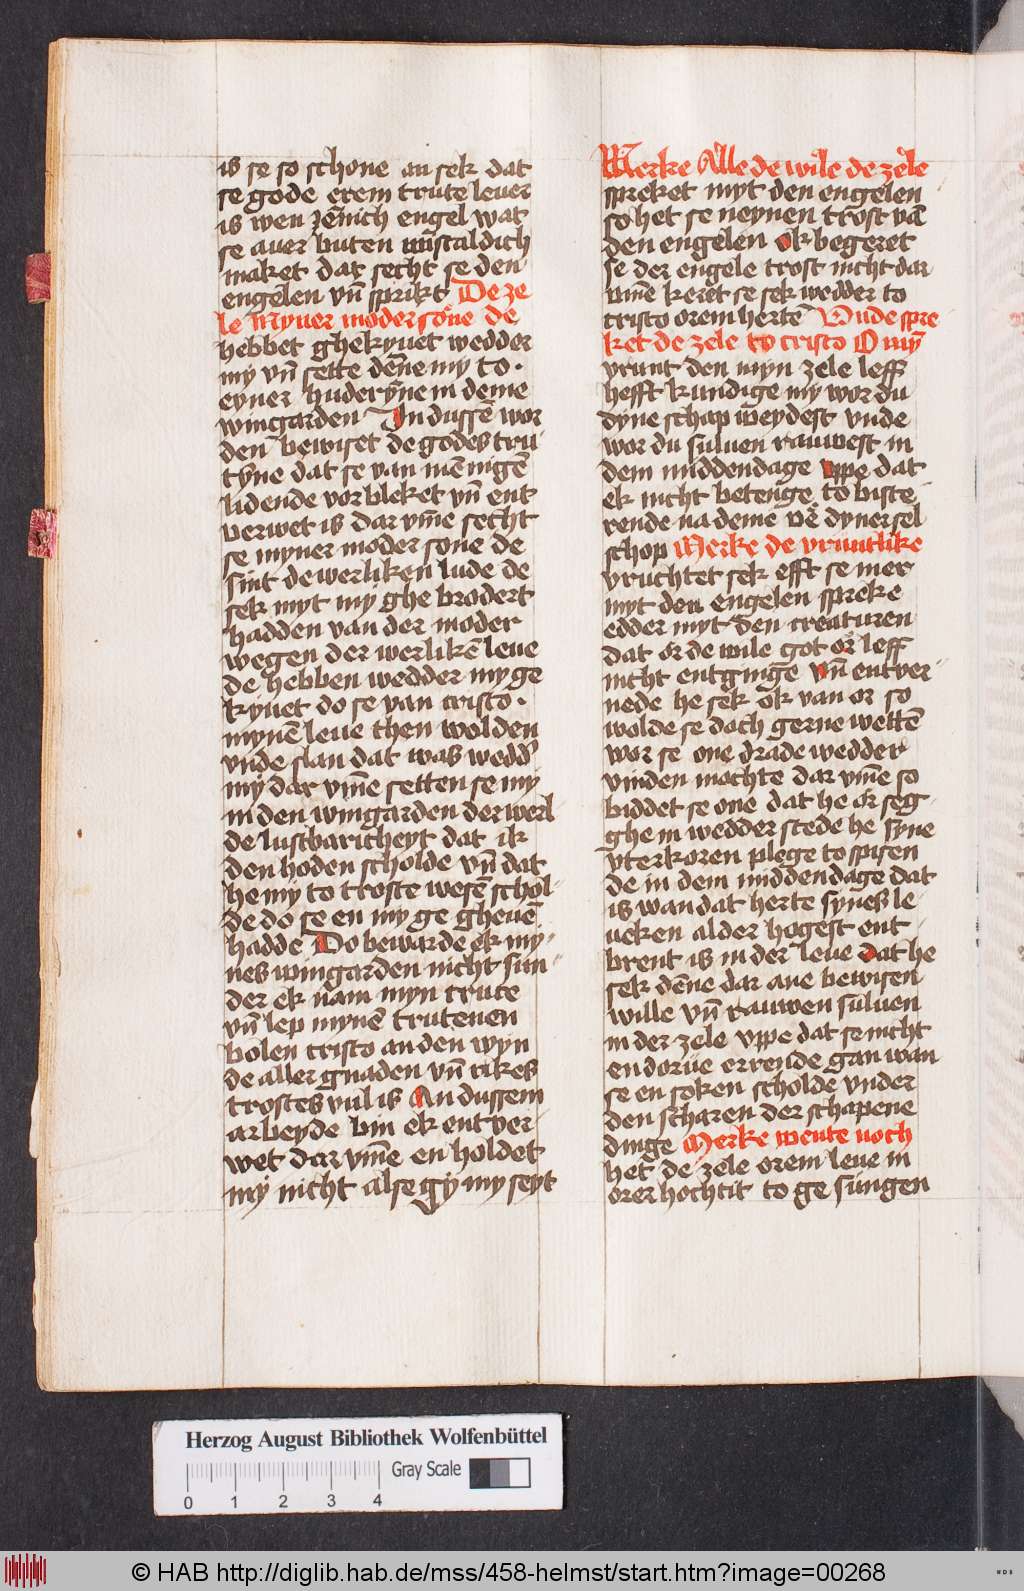 is se so schone an sek dat
se gode erem trute leuer
is wen zēnich engel wat
se auer buten vn̄staldich
maket dat secht se den
engelen vn̄ sprikt De ze
le Myner moder sone de
hebbet ghekyuet wedder
my vn̄ sette dēne my to ·
eyner huderyn̄e in deme
wingarden In dussē wor
den bewiset de godes tru
tyn̄e dat se van mēnigē
lidende vor bleket vn̄ ent
verwet is dar vm̄e secht
se myner moder sone de
sint de werliken lude de
sek myt my ghe brodert
hadden van der moder
wegen der werlikē leue
de hebben wedder my ge
kyuet do se van cristo ·
mynē leue then wolden
vnde slan dat was wedd̉
my dar vm̄e setten se my
in den wingarden der werl
de lustbaricheyt dat ik
den hoden scholde vn̄ dat
he my to troste wesē schol
de do se en my ge gheuē
hadde Do bewarde ek my
nes wingarden nicht sun
der ek nam myn trute
vn̄ lep mynē trutenen
bolen cristo an den wyn
de aller gnaden vn̄ rikes
trostes vul is An dussem
arbeyde bin ek ent ver
wet dar vm̄e en holdet
my nicht alse gy my seyt
Merke Alle de wile de zele
spreket myt den engelen
so het se neynen trost vā
den engelen ok begeret
se der engele trost nicht dar
vm̄e keret se sek wedder to
cristo orem hertē Vnde spre
ket de zele to cristo O my̅
vrunt den myn zele leff
hefft kundige my wor du
dyne schap weydest vnde
wor du suluen rauwest in
dem middendage vppe dat
ek nicht betenge to biste
rende na deme vē dyner sel
schop Merke de vruntlike
vruchtet sek efft se mer
myt den engelen spreke
edder myt den creaturen
dat or de wile got or leff
nicht entginge vn̄ entver
nede he sek ok van or so
wolde se doch gerne wettē
wor se one drade wedder
vinden mochte dar vm̄e so
biddet se one dat he or seg
ghe in wedder stede he syne
vterkoren plege to spisen
de in dem middendage dat
is wan dat herte synes le
ueken alder hogest ent
brent is in der leue dat he
sek dēne dar aue bewisen
wille vn̄ rauwen suluen
in der zele vppe dat se nicht
en dorue errende gan wan
se en soken scholde vnder
den scharen der schapene
dinge Merke wente noch
het de zele orem leue in
orer hochtit to ge sungen
Herzog August Bibliothek Wolfenbüttel
Gray Scale
0 1 2 3 4
© HAB http://diglib.hab.de/mss/458-helmst/start.htm?image=00268